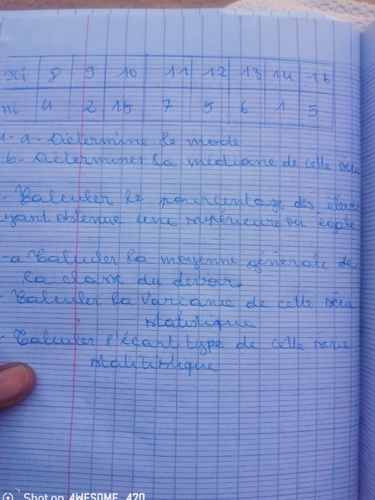 xi 8 9 10 11 12 13 14 16
ni 4 2 15 7 5 6 1 5
1-a-Détermine le mode
b-Déterminer la médiane de cette série
-Calculer le pourcentage des élèves
ayant obtenue une supérieure ou égale
-a Calculer la moyenne générale de
la classe du devoir.
-Calculer la variance de cette série
statistique
-Calculer l'écart type de cette série
statistique
Shot on AWESOME A70